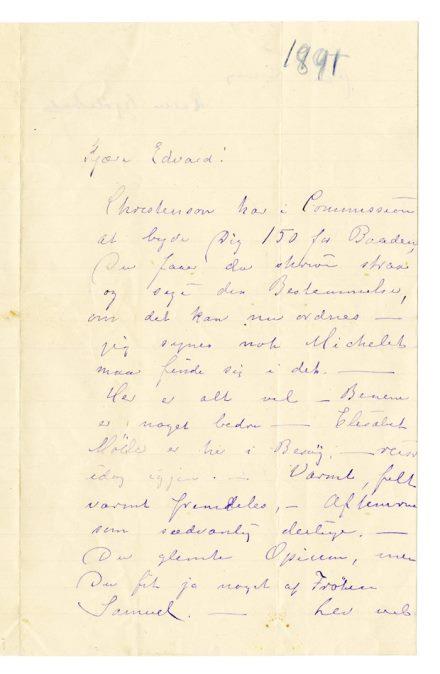 1891
Kjære Edvard!
Christenson har i Commission
at byde Dig 150 for Baaden,
Du faar da skrive straa
og sige din Bestemmelse,
om det kan nu ordnes —
jeg synes nok Michelet
maa finde sig i det. —
Her er alt vel — Benene
er noget bedre — Elisabet
Mölle er her i Besög. — reise
idag igjen. — Varmt, fælt
varmt fremdeles, — Aftenerne
som sædvanlig deilige. —
Du glemte Opium, men
Du fik ja noget af Fröken
Samuel. — Lev vel